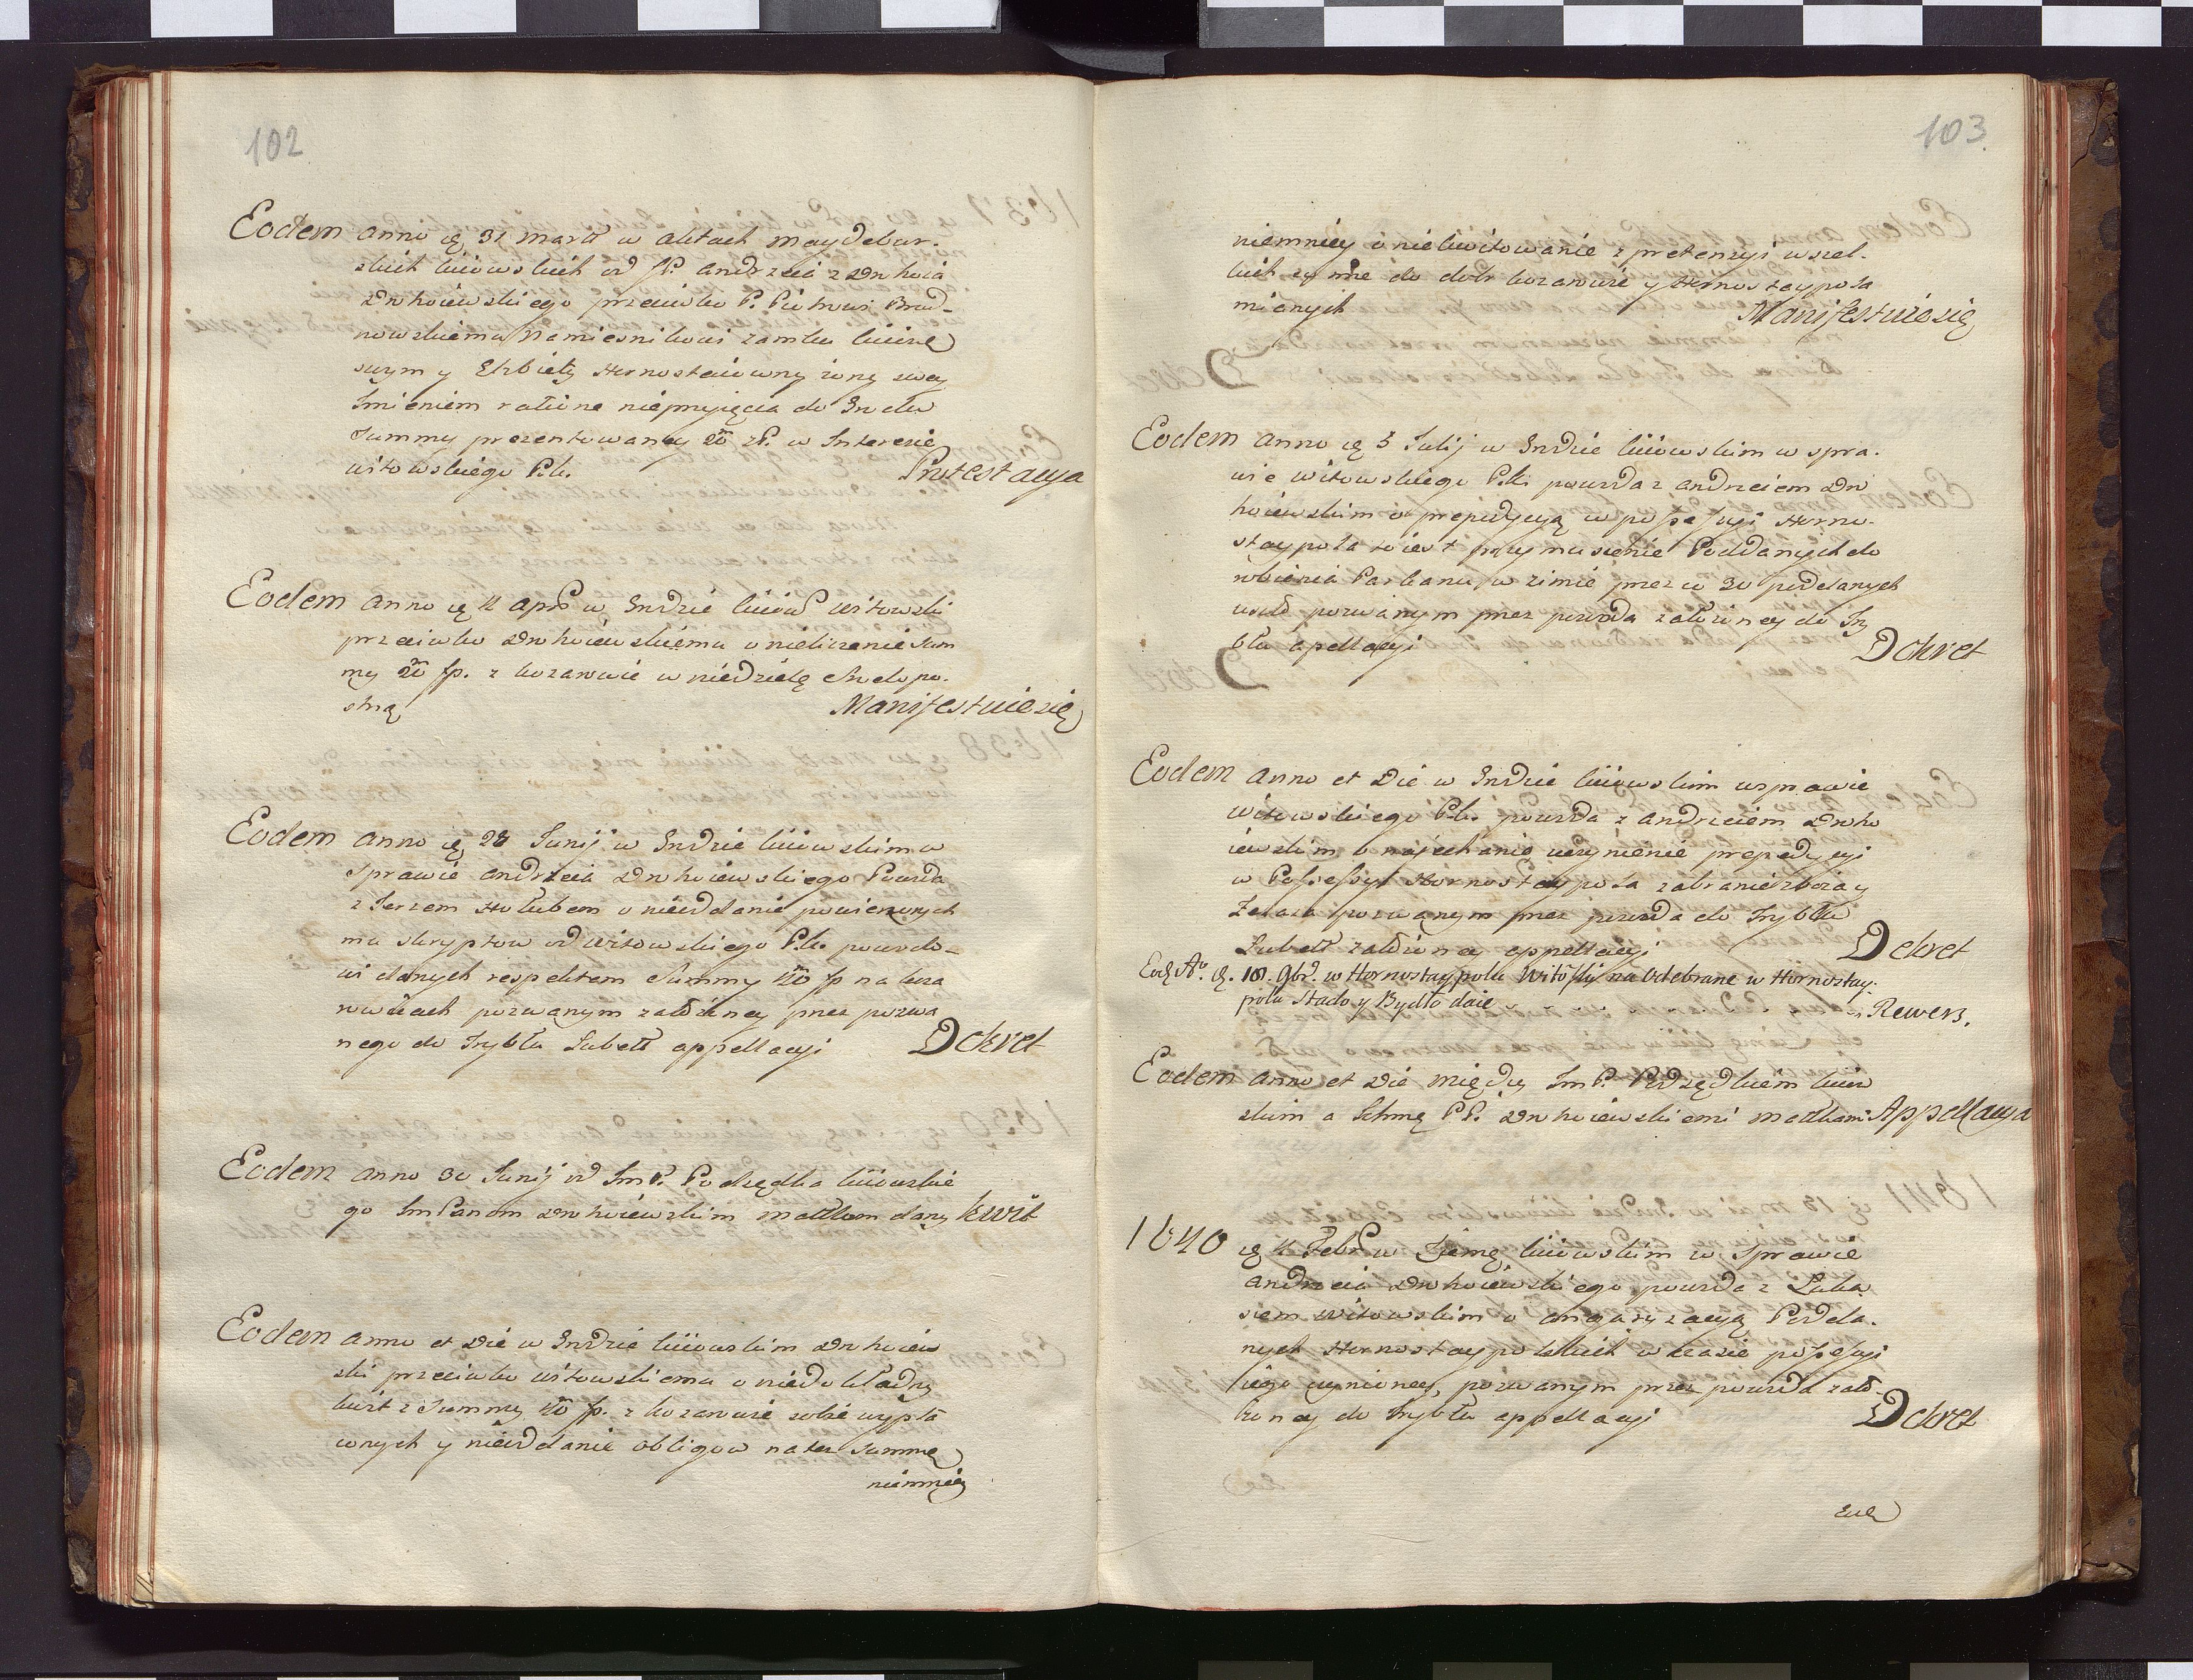 102
Eodem anno ię 31 marti w aktach maydebur-
skich kiiowskich od JP. Andrzeia z Drohoia
Drohoiewskiego przeciwko P. Piotrowi Brud-
nowskiemu Namiesnikowi zamku kiiows
swym y Elzbiety Hornostaiowny zony swey
Imieniem ratione nieprzyięcia do Grodu
Summy prezentowaney zł. w Interesie
witowskiego P.k. Protestacya
Eodem anno ię 4 apr w Grodzie kiiows witowski
przeciwko Drohoiewskiemu o nieliczenie Sum
my fp. z kozarowic w niedzielę Srodopo-
stną Manifestuie się
Eodem anno ię 28 Junij w Grodzie kiiowskim w
sprawie Andrzeia Drohoiewskiego Powoda
z Jerzem Hołubem o nieoddanie powierzonych
mu skryptow od witowskiego P.k. powodo-
wi danych respektem Summy fp na koza
rowicach pozwanym założoney przez pozwa
nego do Trybłu Lubelł appellacyi Dekret
Eodem anno 30 Junij od Jm P. Podsędka kiiowskie
go Jm Panom Drohoiewskim małłkom dany kwit
Eodem anno et Die w Grodzie kiiowskim Drohoiew
ski przeciwko witowskiemu o niedokładny
kwit z Summy fp. z kozarowic sobie wypła
conych y nieoddanie obligow na tes summę
niemniey
103
niemniey o niekwitowanie z pretensyi wszel-
kich do dobr kozarowic y Hornostaypola
mianych Manifestuie się
Eodem anno ię 5 Julij w Grodzie kiiowskim w spra-
wie witowskiego P.k. powoda z Andrzeiem Dro
hoiewskim o prepedycyą w possessyi Horno-
staypola to iest przymuszenie Poddanych do
robienia Parkanu w zimie przez 30 poddanych
pozwanym przez powoda założoney do Try
błu apellacyi Dekret
Eodem anno et Die w Grodzie kiiowskim w sprawie
witowskiego P.k. powoda z Andrzeiem Droho
iewskim o naiechanie uczynienie prepedycyi
w Possessyi Hornostaypola zabranie zboza y
zelaza pozwanym przez powoda do Trybłu
Lubelł założoney appellacyi Dekret
Eodę Ao. ię. 10. 9br. w Hornostaypolu Witoski na Odebrane w Hornostay-
polu Stado y Bydło daie Rewers.
Eodem anno et Die między Jm P. Podsędkiem kiiow
skim a Jchmę PP. Drohoiewskiemi małłkami Appellacya
1640 ię 4 Febr w Ziemę kiiowskim w sprawie
Andrzeia Drohoiewskiego powoda z Łuka
szem witowskim o angaryzacyą Podda-
nych Hornostaypolskich w czasie possessyi
swego czynioney, pozwanym przez powoda zało-
zoney do Trybłu appellacyi Dekret